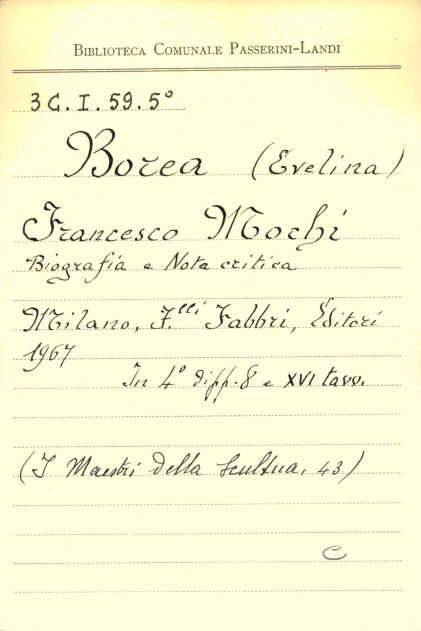 BIBLIOTECA COMUNALE PASSERINI-LANDI
3 C. I. 59. 5°
Borea (Evelina)
Francesco Mochi
Biografia e Nota critica
Milano, F.lli Fabbri, Editori
1967
In 4° di pp. 8 e XVI tavv.
(I Maestri della Scultura, 43)
C